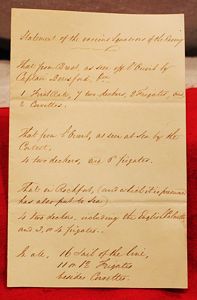 Statement of the various Squadrons of the Enemy
That from Brest, as seen off L'Orient by
Captain Beresford,
1 First Rate, 7 two deckers, 2 Frigates, and
2 Corvettes.
That from L'Orient, as seen at Sea by the
4 two deckers, and 5 frigates.
That in Rochfort, (and which it is presumed
has also put to Sea)
4 two deckers, including the English
and 3, or 4 frigates.
In all, 16 Sail of the line,
11 or 12 Frigates
besides Corvettes.